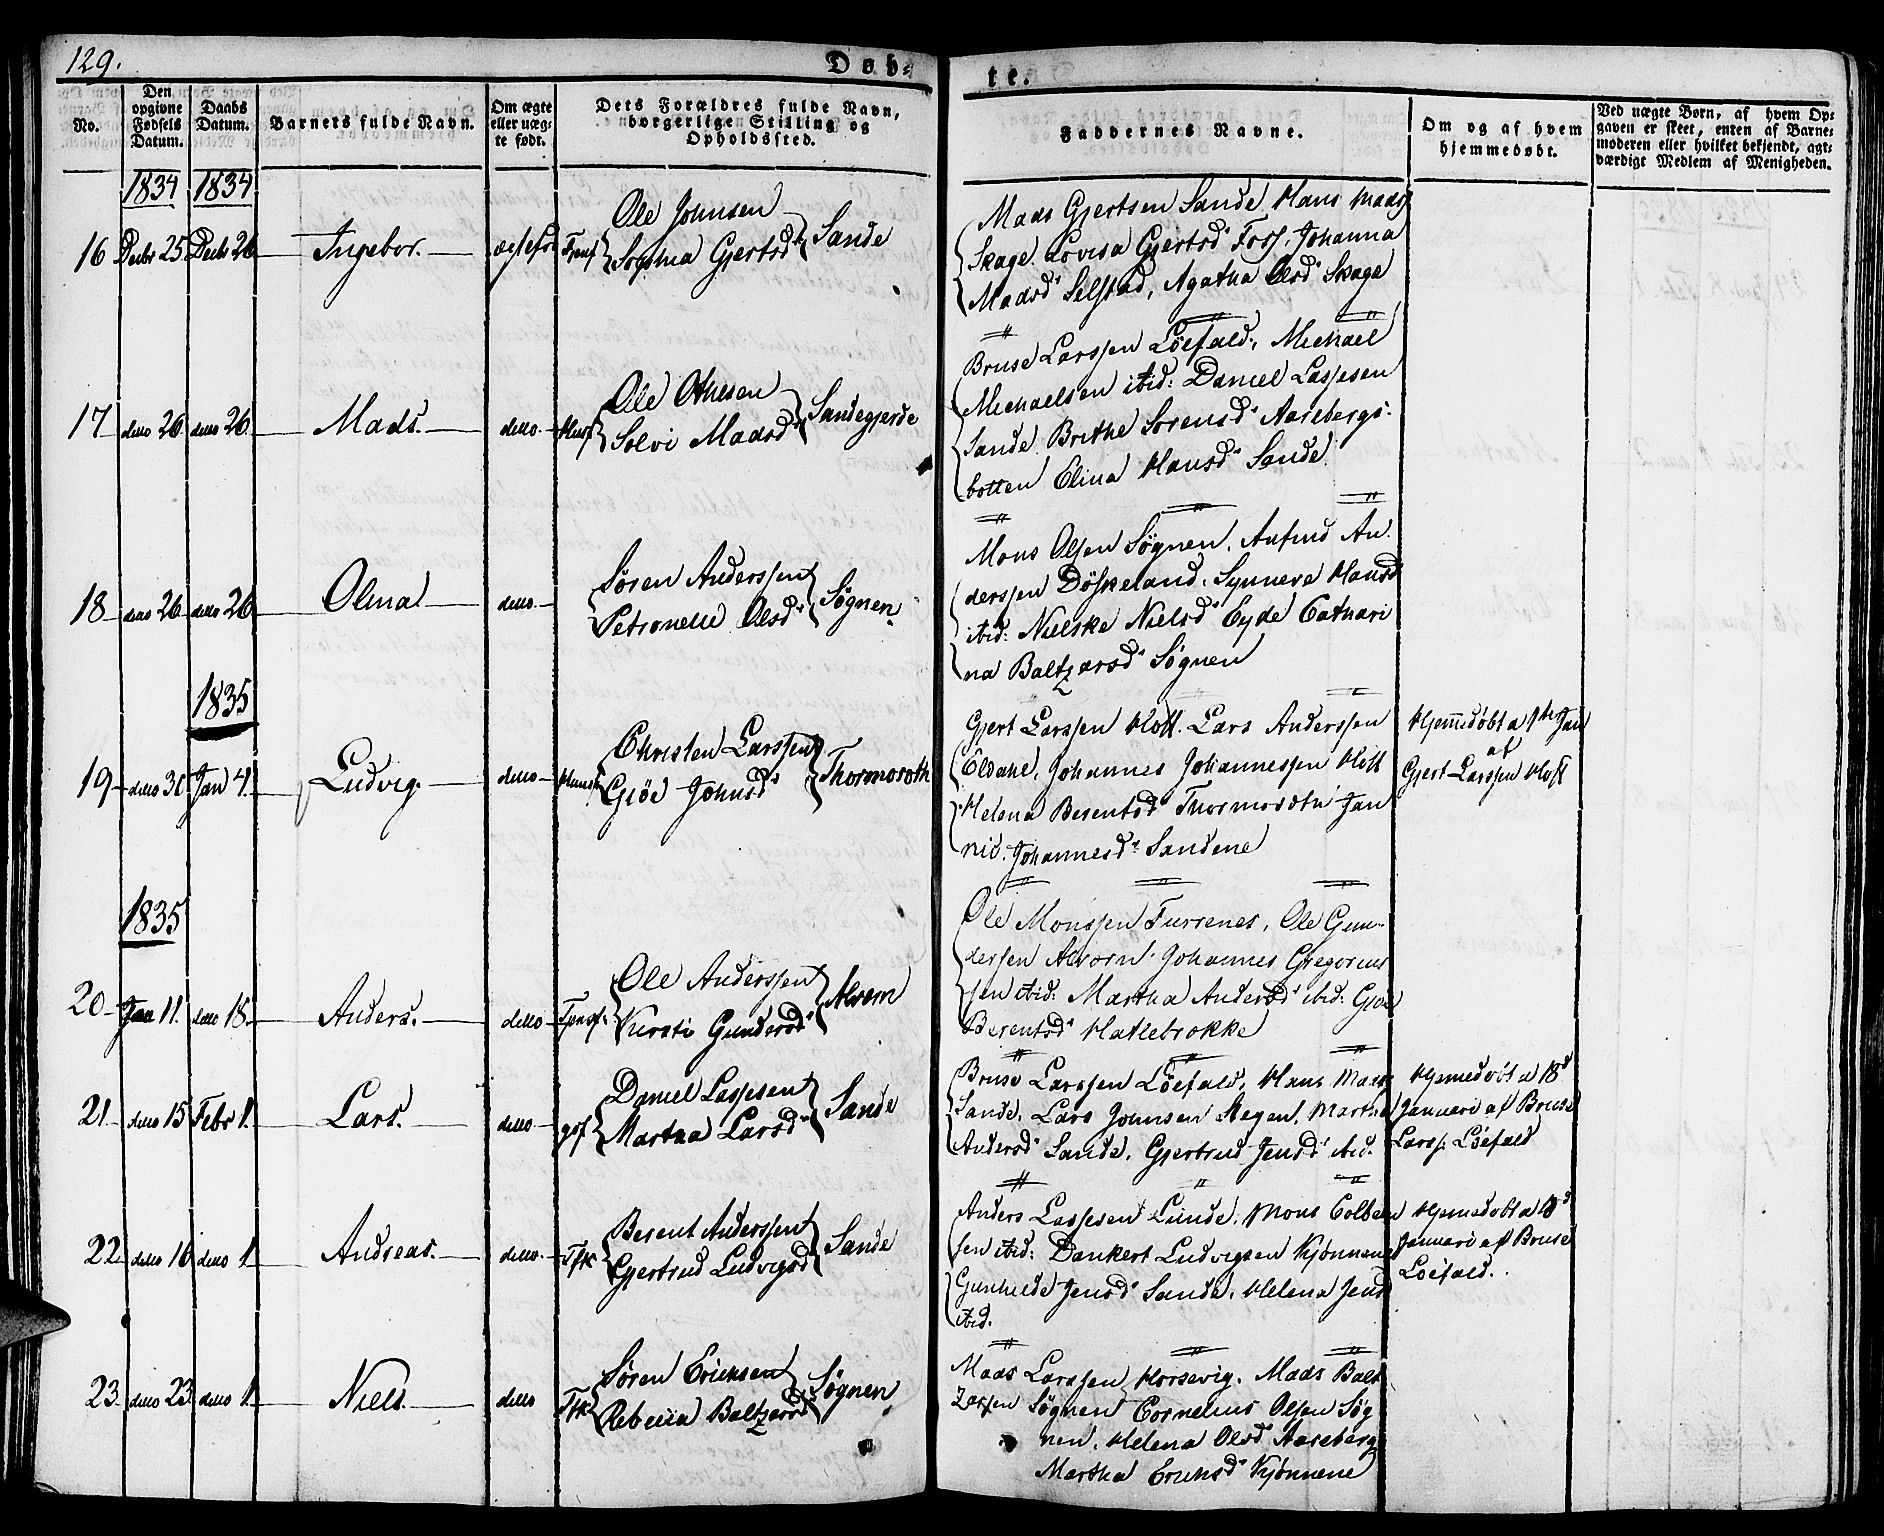 129.
Døbte.
No.
Den opgivne Fødsels Datum.
Daabs Datum.
Barnets fulde Navn.
Om ægte eller uægte født.
Dets Forældres fulde Navn, borgerlige Stilling og Opholdssted.
Faddernes Navne.
Om og af hvem hjemmedøbt.
Ved uægte Børn, af hvem Opgaven er skeet, enten af Barnemoderen eller hvilket bekjendt, agtværdigt Medlem af Menigheden.
1834 1834
16 Decbr 25 Decbr 26 Ingebor.
Ole Johnsen
Gjertsd. Sande
Mads Gjertsen Sande, Hans Mads
Skage. Lovisa Gjertsd. Johanna
Madsd. Selstad, Agatha Olsd. Skage
17 detto 26 detto 26 Mads. detto Huusf
Ole
Solvi Madsd. Sandegjerde
Bruse Larssen Löefald, Michael
Michaelsen ibid: Daniel Lassesen
Sande. Brithe Sorensd. Aarebergs
botten Elina Hansd. Sande
18 detto 26 detto 26 Olina detto
Søren Anderssen
Petronelle Olsd. Søgnen
Mons Olsen Søgnen, Anfind An
derssen Döskeland, Synneve Hansd
ibid: Nielske Nielsd. Eyde Cathari
na Baltzersd. Søgnen
1835
19 detto 30 Jan 4. Ludvig. detto Huusf
Christen Larssen
Giöe Johnsd.
Gjert Larssen Hoff. Lars Anderssen
Eldahl, Johannes Johannessen Hoff
Helena Berentsd. Jan
nic. Johannesd. Sandene
Hjemedöbt d 1ste Jan
af
Gjert Larssen Hoff
1835
20 Jan 11. detto 18. Anders. detto
Ole Anderssen
Kirsti Gundersd.
Ole Monssen Furrenes, Ole Gun
dersen Johannes Gregorius
sen ibid: Martha Andersd. ibid: Giöe
Berentsd. Hatlebrokke
21 detto 15 Febr 1. Lars. detto
Daniel Lassesen
Martha Larsd. Sande
Bruse Larssen Löefald, Hans Mads
Sande, Lars Johnsen Martha
Andersd. Sande, Gjertrud Jensd. ibid.
Hjemedöbt d 18d
Januari af Bruse
Larss: Löefald
22 detto 16 detto 1 Andreas. detto
Berent Anderssen
Gjertrud Ludvigsd. Sande
Anders Lassesen Lunde, Mons Colben
sen ibid: Dankert Ludvigsen Kjönnene
Gunhilde Jensd. Sande, Helena Jensd
ibid.
Hjemedöbt d
Januari af Bruse
Löefald.
23 detto 23 detto 1 Niels. detto
Søren Ericksen
Rebecca Baltzersd. Søgnen
Mads Larssen Horsevig. Mads Balt
zersen Søgnen Cornelius Olsen Søg
nen, Helena Olsd. Aareberg
Martha Ericksd. Kjönnene